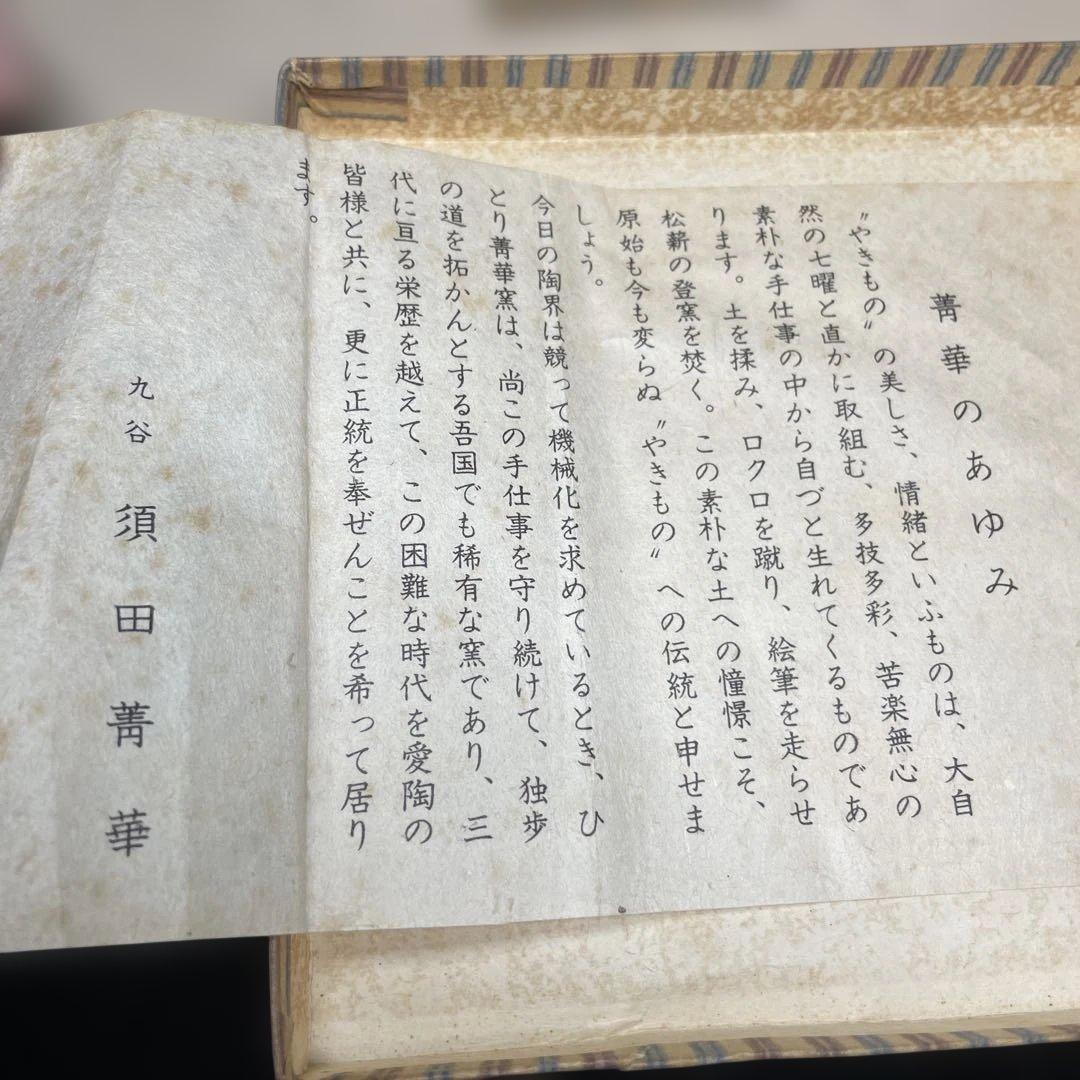 菁華のあゆみ
〝やきもの〟の美しさ、情緒といふものは、大自
然の七曜と直かに取組む、多技多彩、苦楽無心の
素朴な手仕事の中から自づと生れてくるものであ
ります。土を揉み、ロクロを蹴り、絵筆を走らせ
松薪の登窯を焚く。この素朴な土への憧憬こそ、
原始も今も変らぬ〝やきもの〟への伝統と申せま
しょう。
今日の陶界は競って機械化を求めているとき、ひ
とり菁華窯は、尚この手仕事を守り続けて、独歩
の道を拓かんとする吾国でも稀有な窯であり、三
代に亘る栄歴を越えて、この困難な時代を愛陶の
皆様と共に、更に正統を奉ぜんことを希って居り
ます。
九谷 須田菁華